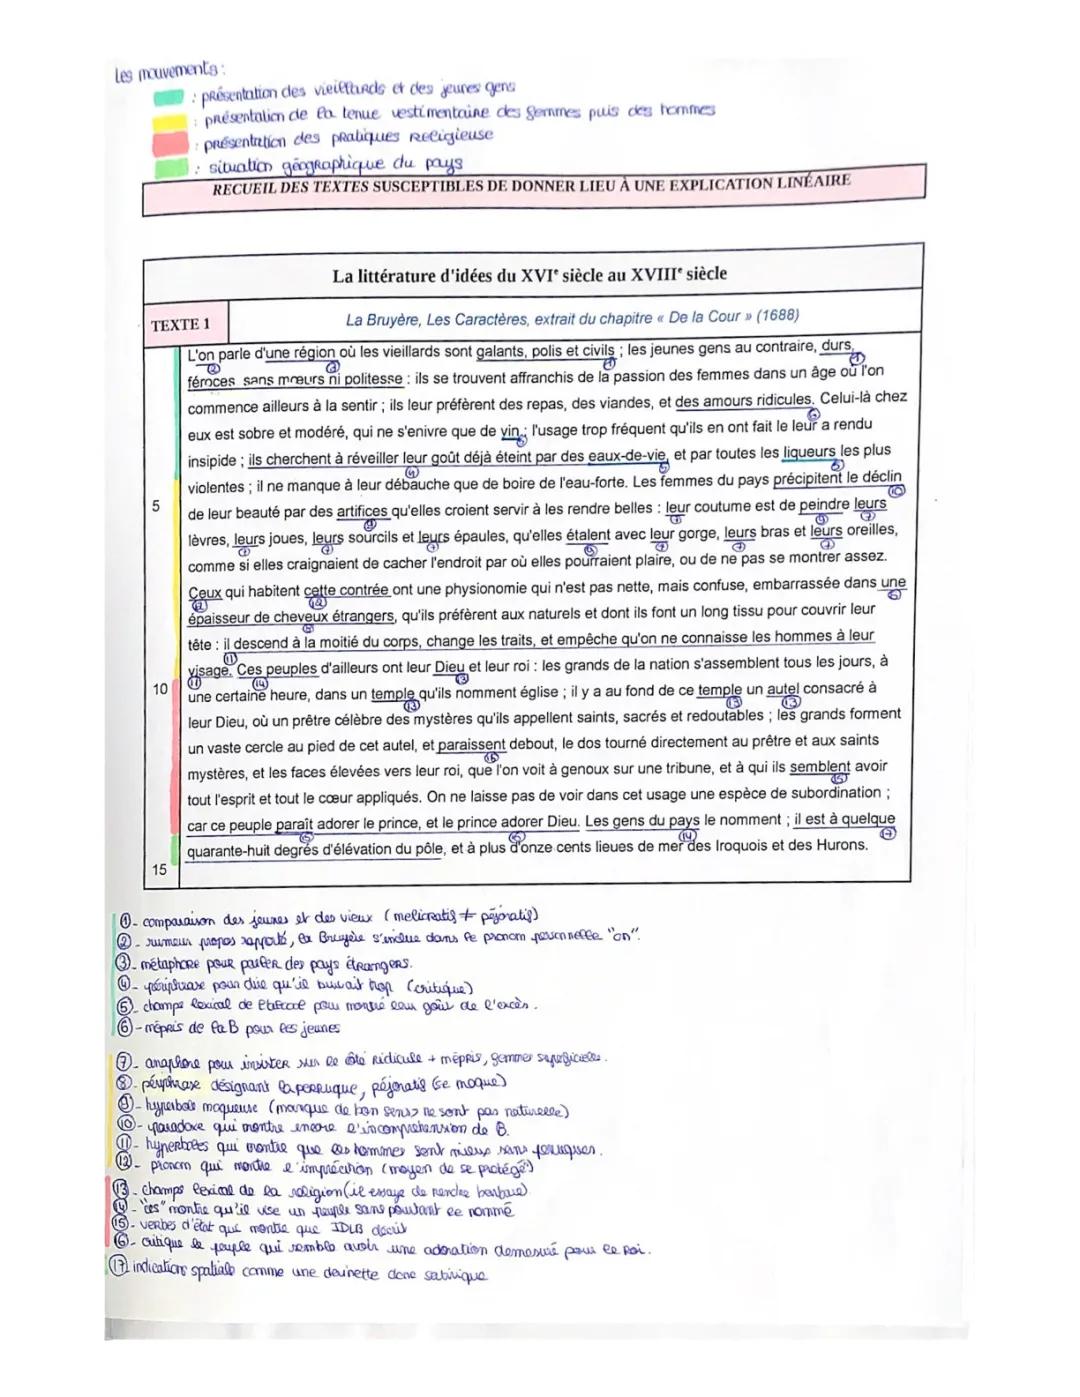 Les mouvements :
: présentation des vieillards et des jeunes gens
: présentation de la tenue vestimentaire des femmes puis des hommes
: présentation des pratiques religieuse
: situation géographique du pays
RECUEIL DES TEXTES SUSCEPTIBLES DE DONNER LIEU À UNE EXPLICATION LINÉAIRE
La littérature d'idées du XVIe siècle au XVIIIe siècle
TEXTE 1
La Bruyère, Les Caractères, extrait du chapitre « De la Cour » (1688)
L'on parle d'une région où les vieillards sont galants, polis et civils ; les jeunes gens au contraire, durs,
féroces, sans mœurs ni politesse : ils se trouvent affranchis de la passion des femmes dans un âge où l'on
commence ailleurs à la sentir ; ils leur préfèrent des repas, des viandes, et des amours ridicules. Celui-là chez
eux est sobre et modéré, qui ne s'enivre que de vin ; l'usage trop fréquent qu'ils en ont fait le leur a rendu
insipide ; ils cherchent à réveiller leur goût déjà éteint par des eaux-de-vie, et par toutes les liqueurs les plus
violentes ; il ne manque à leur débauche que de boire de l'eau-forte. Les femmes du pays précipitent le déclin
5
de leur beauté par des artifices qu'elles croient servir à les rendre belles : leur coutume est de peindre leurs
lèvres, leurs joues, leurs sourcils et leurs épaules, qu'elles étalent avec leur gorge, leurs bras et leurs oreilles,
comme si elles craignaient de cacher l'endroit par où elles pourraient plaire, ou de ne pas se montrer assez.
Ceux qui habitent cette contrée ont une physionomie qui n'est pas nette, mais confuse, embarrassée dans une
épaisseur de cheveux étrangers, qu'ils préfèrent aux naturels et dont ils font un long tissu pour couvrir leur
tête : il descend à la moitié du corps, change les traits, et empêche qu'on ne connaisse les hommes à leur
visage. Ces peuples d'ailleurs ont leur Dieu et leur roi : les grands de la nation s'assemblent tous les jours, à
10
une certaine heure, dans un temple qu'ils nomment église ; il y a au fond de ce temple un autel consacré à
leur Dieu, où un prêtre célèbre des mystères qu'ils appellent saints, sacrés et redoutables ; les grands forment
un vaste cercle au pied de cet autel, et paraissent debout, le dos tourné directement au prêtre et aux saints
mystères, et les faces élevées vers leur roi, que l'on voit à genoux sur une tribune, et à qui ils semblent avoir
tout l'esprit et tout le cœur appliqués. On ne laisse pas de voir dans cet usage une espèce de subordination ;
car ce peuple paraît adorer le prince, et le prince adorer Dieu. Les gens du pays le nomment ; il est à quelque
quarante-huit degrés d'élévation du pôle, et à plus d'onze cents lieues de mer des Iroquois et des Hurons.
15
① - comparaison des jeunes et des vieux (mélioratif ≠ péjoratif)
② - rumeur propos rapporté, la Bruyère s'inclue dans le pronom personnelle "on".
③ - métaphore pour parler des pays étrangers.
④ - périphrase pour dire qu'il buvait trop (critique)
⑤ - champs lexical de l'alcool pour montré leur goût de l'excès.
⑥ - mépris de la B pour les jeunes
⑦ - anaphore pour insister sur le côté ridicule + mépris, femmes superficielle.
⑧ - périphrase désignant la perruque, péjoratif (se moque)
⑨ - hyperbole moqueuse (manque de bon sens> ne sont pas naturelle)
⑩ - paradoxe qui montre encore l'incompréhension de B.
⑪ - hyperboles qui montre que les hommes sont mieux sans perruques.
⑫ - pronom qui montre l'imprécision (moyen de se protégé)
⑬ - champs lexical de la religion (il essaye de rendre barbare)
⑭ - "ces" montre qu'il vise un peuple sans pourtant le nommé
⑮ - verbes d'état qui montre que JDLB décrit
⑯ - critique le peuple qui semble avoir une adoration demesuré pour le roi.
⑰ indications spatiale comme une devinette donc satirique